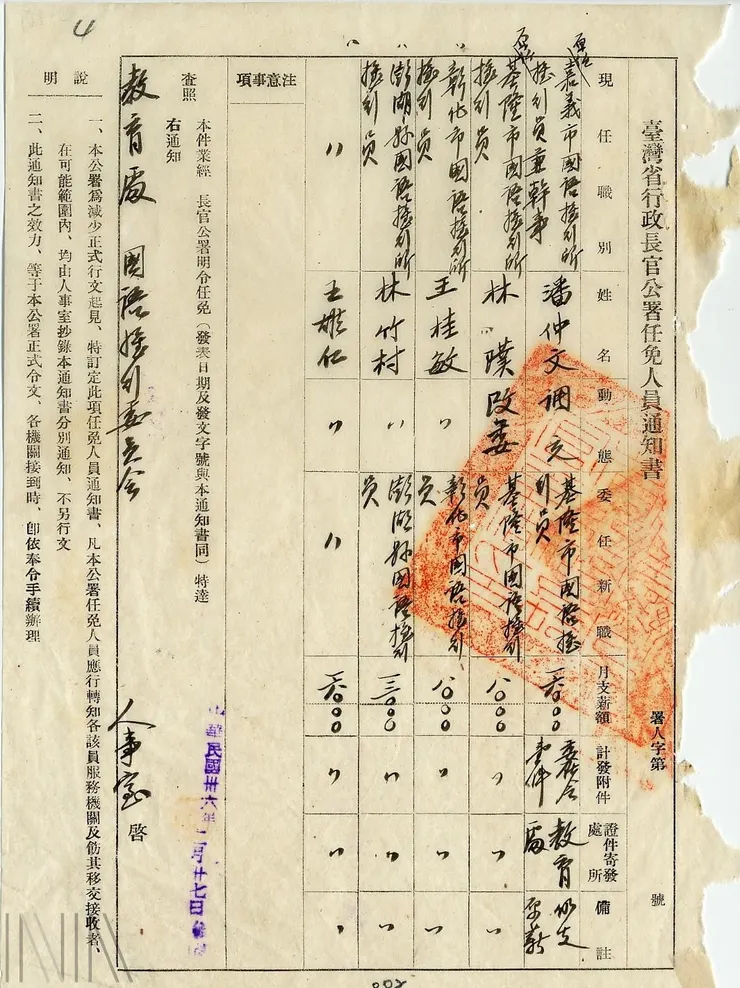 臺灣省行政長官公署任免人員通知書
署人字第 號
現任職別
姓名
動態
委任新職
月支薪額
計發附件
證件寄發處所
備註
原任
嘉義市國語推行所
推行員兼幹事
潘仲文
調充
基隆市國語推
行員
委任令
壹件
教育
處
仍支
原薪
原任
基隆市國語推行所
推行員
林璞
改委
基隆市國語推行
員
八〇〇〇
〃
〃
〃
彰化市國語推行所
推行員
王桂敏
〃
彰化市國語推行
員
八〇〇〇
〃
〃
〃
澎湖縣國語推行所
推行員
林竹村
〃
澎湖縣國語推行
員
〃
〃
〃
〃
〃
〃
〃
〃
〃
注意事項
本件業經 長官公署明令任免(發表日期及發文字號與本通知書同)特達
查照
右通知
教育處 國語推行委員會
人事室 啓
中華民國卅六年二月廿七日
說明
一、本公署爲減少正式行文起見、特訂定此項任免人員通知書、凡本公署任免人員應行轉知各該員服務機關及飭其移交接收者、
在可能範圍內、均由人事室抄錄本通知書分別通知、不另行文
二、此通知書之效力、等于本公署正式令文、各機關接到時、卽依奉令手續辦理
4